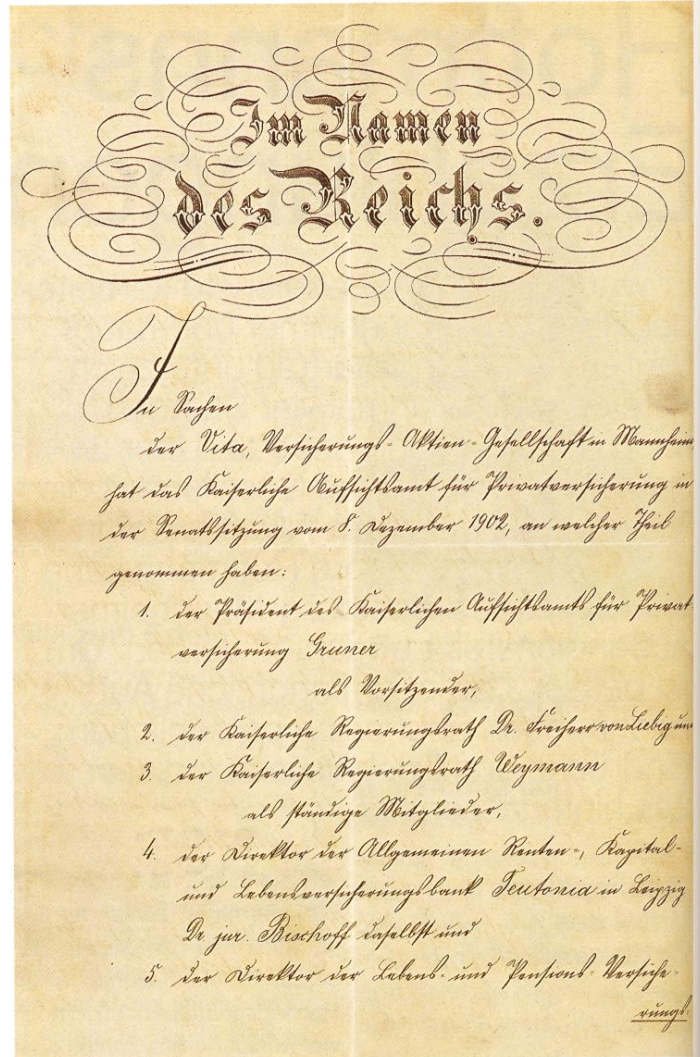 Im Namen
des Reichs.
In Sachen
der Vita, Versicherungs-Aktien-Gesellschaft in Mannheim,
hat das Kaiserliche Aufsichtsamt für Privatversicherung in
der Senatssitzung vom 8. Dezember 1902, an welcher Theil
genommen haben:
1. der Präsident des Kaiserlichen Aufsichtsamts für Privat
versicherung Gruner
als Vorsitzender,
2. der Kaiserliche Regierungsrath Dr. Freiherr von Liebig und
3. der Kaiserliche Regierungsrath Weymann
als ständige Mitglieder,
4. der Direktor der Allgemeinen Renten-, Kapital-
und Lebensversicherungsbank Teutonia in Leipzig
Dr. jur. Bischoff daselbst und
5. der Direktor der Lebens- und Pensions-Versiche-
rungs-